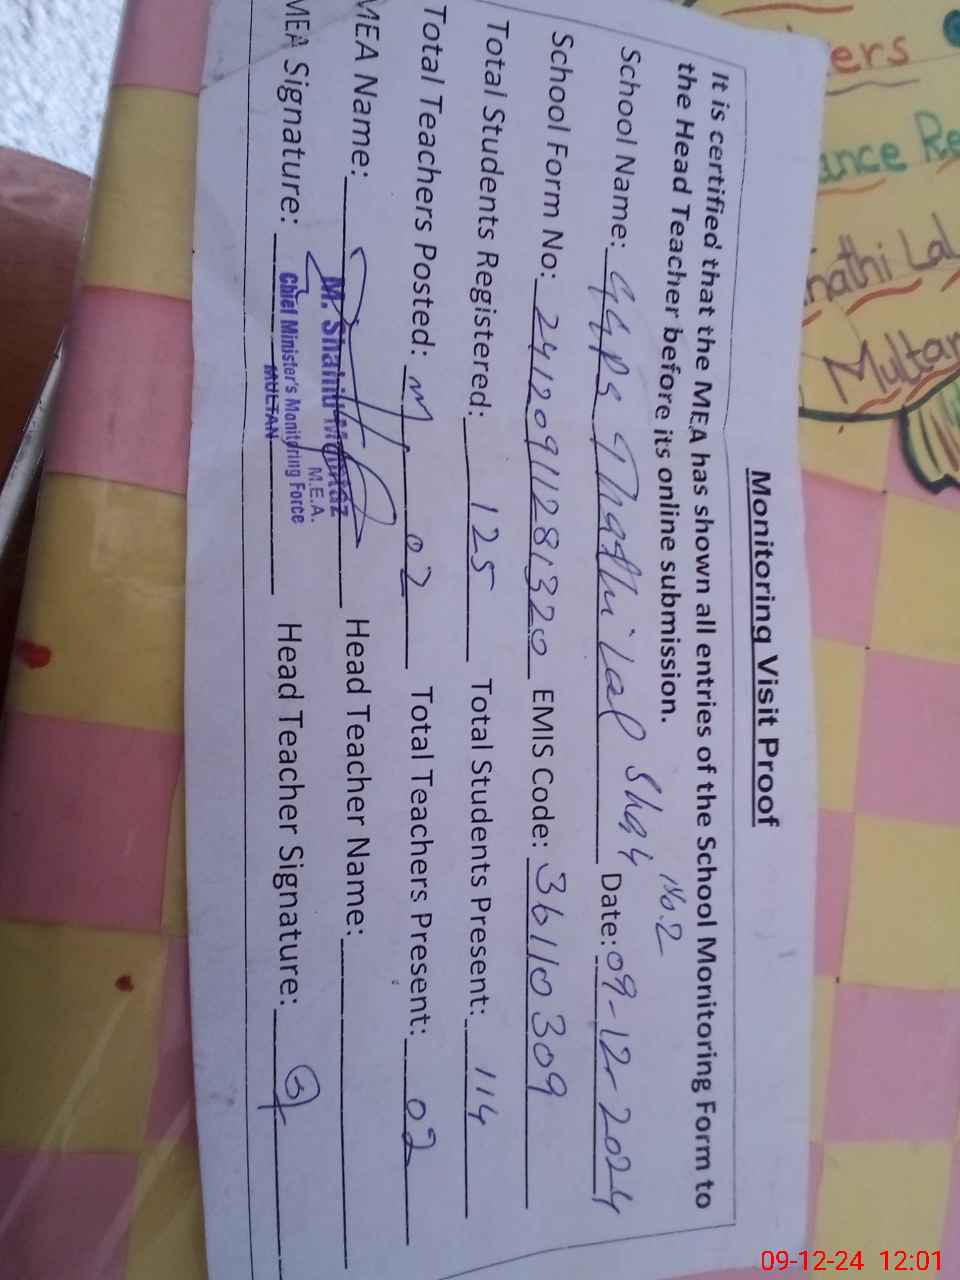 Monitoring Visit Proof
It is certified that the MEA has shown all entries of the School Monitoring Form to
the Head Teacher before its online submission.
No.2
School Name: GGPS Thathi Lal Shah Date: 09-12-2024
School Form No: 24120911281320 EMIS Code: 36110309
Total Students Registered: 125 Total Students Present: 114
Total Teachers Posted: 02 Total Teachers Present: 02
MEA Name: Head Teacher Name:
M. Shahid Mumtaz
M.E.A.
Chief Minister's Monitoring Force
MULTAN
MEA Signature: Head Teacher Signature:
ers
ance Re
hathi Lal
Multan
09-12-24 12:01